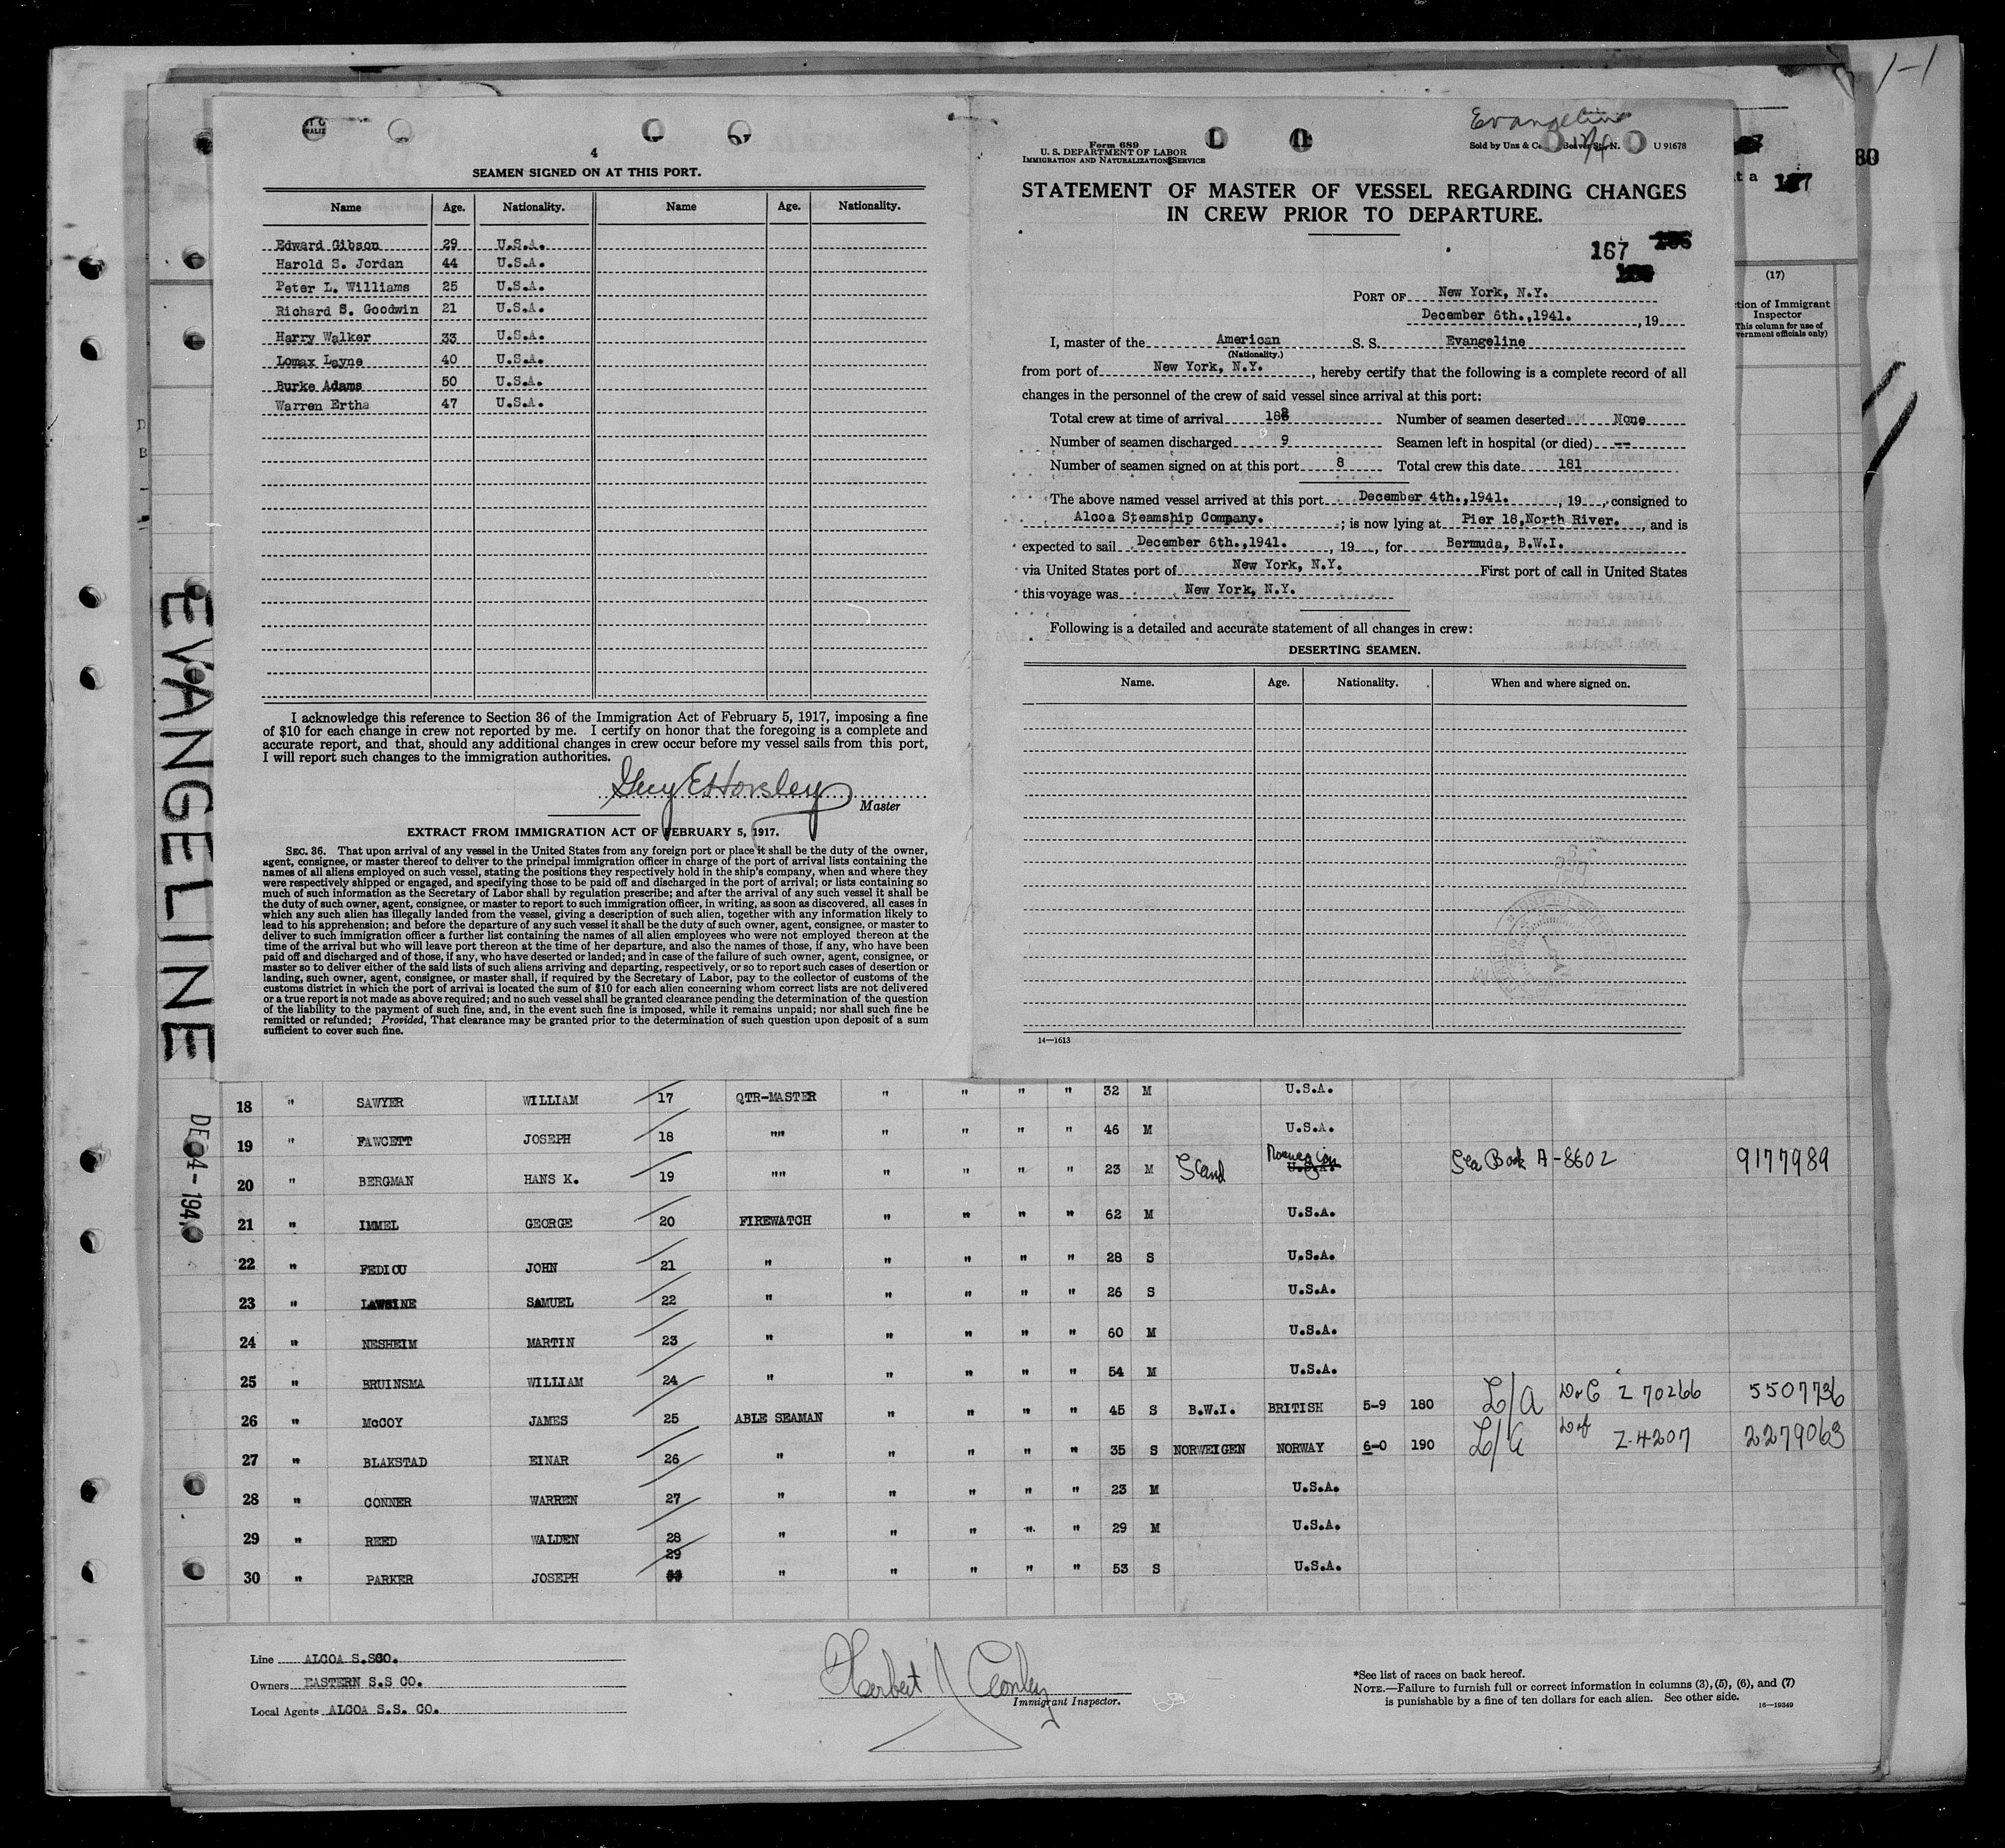 1-1
4
SEAMEN SIGNED ON AT THIS PORT.
Name Age. Nationality. Name Age. Nationality.
Edward Gibson 29 U.S.A.
Harold S. Jordan 44 U.S.A.
Peter L. Williams 25 U.S.A.
Richard S. Goodwin 21 U.S.A.
Harry Walker 33 U.S.A.
Lomax Layne 40 U.S.A.
Burke Adams 50 U.S.A.
Warren Ertha 47 U.S.A.
I acknowledge this reference to Section 36 of the Immigration Act of February 5, 1917, imposing a fine
of $10 for each change in crew not reported by me. I certify on honor that the foregoing is a complete and
accurate report, and that, should any additional changes in crew occur before my vessel sails from this port,
I will report such changes to the immigration authorities.
Guy E Horsley
Master
EXTRACT FROM IMMIGRATION ACT OF FEBRUARY 5, 1917.
SEC. 36. That upon arrival of any vessel in the United States from any foreign port or place it shall be the duty of the owner,
agent, consignee, or master thereof to deliver to the principal immigration officer in charge of the port of arrival lists containing the
names of all aliens employed on such vessel, stating the positions they respectively hold in the ship's company, when and where they
were respectively shipped or engaged, and specifying those to be paid off and discharged in the port of arrival; or lists containing so
much of such information as the Secretary of Labor shall by regulation prescribe; and after the arrival of any such vessel it shall be
the duty of such owner, agent, consignee, or master to report to such immigration officer, in writing, as soon as discovered, all cases in
which any such alien has illegally landed from the vessel, giving a description of such alien, together with any information likely to
lead to his apprehension; and before the departure of any such vessel it shall be the duty of such owner, agent, consignee, or master to
deliver to such immigration officer a further list containing the names of all alien employees who were not employed thereon at the
time of the arrival but who will leave port thereon at the time of her departure, and also the names of those, if any, who have been
paid off and discharged and of those, if any, who have deserted or landed; and in case of the failure of such owner, agent, consignee, or
master so to deliver either of the said lists of such aliens arriving and departing, respectively, or so to report such cases of desertion or
landing, such owner, agent, consignee, or master shall, if required by the Secretary of Labor, pay to the collector of customs of the
customs district in which the port of arrival is located the sum of $10 for each alien concerning whom correct lists are not delivered
or a true report is not made as above required; and no such vessel shall be granted clearance pending the determination of the question
of the liability to the payment of such fine, and, in the event such fine is imposed, while it remains unpaid; nor shall such fine be
remitted or refunded; Provided, That clearance may be granted prior to the determination of such question upon deposit of a sum
sufficient to cover such fine.
Evangeline
Form 689
U. S. DEPARTMENT OF LABOR
IMMIGRATION AND NATURALIZATION SERVICE
Sold by Unz & Co. Beaver St. N. U 91678
STATEMENT OF MASTER OF VESSEL REGARDING CHANGES
IN CREW PRIOR TO DEPARTURE.
167
PORT OF New York, N.Y.
December 6th.,1941. , 19
I, master of the American S. S. Evangeline
(Nationality.)
from port of New York, N.Y. , hereby certify that the following is a complete record of all
changes in the personnel of the crew of said vessel since arrival at this port:
Total crew at time of arrival 182 Number of seamen deserted None
Number of seamen discharged 9 Seamen left in hospital (or died) --
Number of seamen signed on at this port 8 Total crew this date 181
The above named vessel arrived at this port December 4th.,1941. , 19 , consigned to
Alcoa Steamship Company. ; is now lying at Pier 18,North River. , and is
expected to sail December 6th.,1941. , 19 , for Bermuda, B.W.I.
via United States port of New York, N.Y. First port of call in United States
this voyage was New York, N.Y.
Following is a detailed and accurate statement of all changes in crew:
DESERTING SEAMEN.
Name. Age. Nationality. When and where signed on.
14—1613
80
t a 167
(17)
tion of Immigrant
Inspector
This column for use of
vernment officials only)
EVANGELINE
DEC 4 - 194
18 " SAWYER WILLIAM 17 QTR-MASTER " " " " 32 M U.S.A.
19 " FAWCETT JOSEPH 18 "" " " " " 46 M U.S.A.
20 " BERGMAN HANS K. 19 "" " " " " 23 M Scand Norwegian U.S.A. Sea Book A-8602 9177989
21 " IMMEL GEORGE 20 FIREWATCH " " " " 62 M U.S.A.
22 " FEDIOU JOHN 21 " " " " " 28 S U.S.A.
23 " LAWSINE SAMUEL 22 " " " " " 26 S U.S.A.
24 " NESHEIM MARTIN 23 " " " " " 60 M U.S.A.
25 " BRUINSMA WILLIAM 24 " " " " " 54 M U.S.A.
26 " McCOY JAMES 25 ABLE SEAMAN " " " " 45 S B.W.I. BRITISH 5-9 180 L/A D of C Z 70266 5507736
27 " BLAKSTAD EINAR 26 " " " " " 35 S NORWEIGEN NORWAY 6-0 190 L/A D of Z-4207 2279063
28 " CONNER WARREN 27 " " " " " 23 M U.S.A.
29 " REED WALDEN 28 " " " " " 29 M U.S.A.
30 " PARKER JOSEPH 29 " " " " " 53 S U.S.A.
Line ALCOA S.SCO.
Owners EASTERN S.S CO.
Local Agents ALCOA S.S. CO.
Herbert J Conley
Immigrant Inspector.
*See list of races on back hereof.
NOTE.—Failure to furnish full or correct information in columns (3), (5), (6), and (7)
is punishable by a fine of ten dollars for each alien. See other side. 16—19349